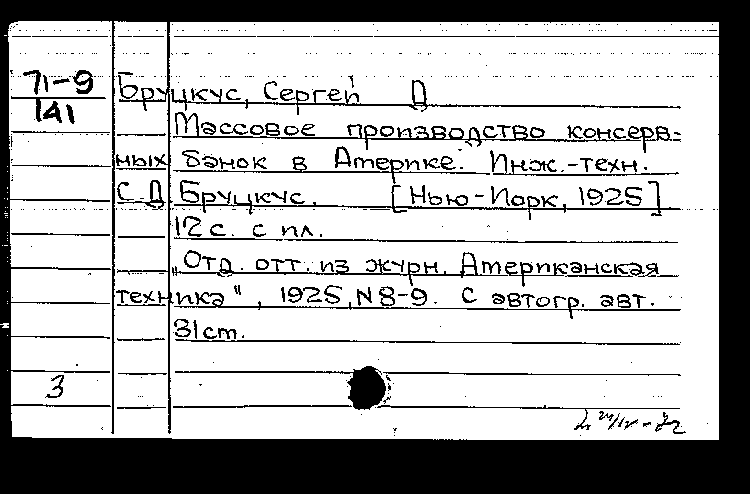 71-9
141
Бруцкус, Сергей Д
Массовое производство консерв-
ных банок в Америке. Инж.-техн.
С.Д Бруцкус. [Нью-Йорк, 1925]
12 с. с пл.
„Отд. отт. из журн. Американская
техника", 1925, N 8-9. С автогр. авт.
31 cm.
3